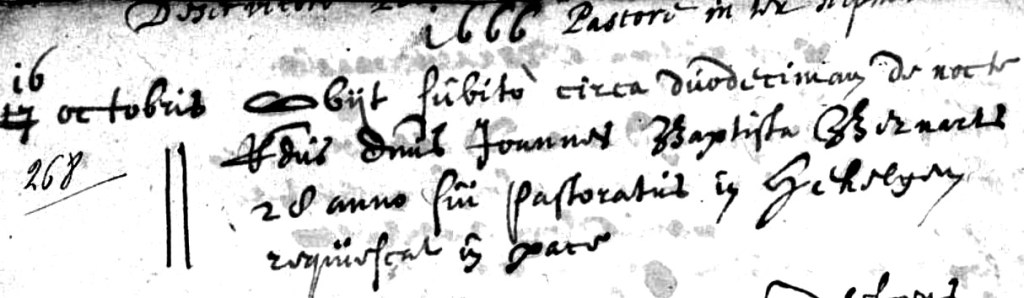 Deservitore
1666 Pastore in
16
17 octobris Obijt subito circa duodecimam de nocte
Rdus dnus Joannes Baptista Bernarts
268
28 anno sui pastoratus in Hekelgem
requiescat in pace